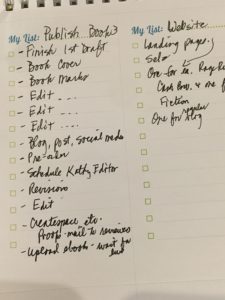 My List: Publish... Book 3
- Finish 1st Draft
- Book Cover
- Book Marks
- Edit ....
- Edit ....
- Edit ....
- Blog, Post, Social Media
- Pre-order
- Schedule Kathy Editor
- Revisions
- Edit
- Createspace etc.
Proofs - mail to reviewers
- Upload ebook - wait for
My List: Website
Landing pages.
One for
Cash Box. & one for
Fiction
regular
One for blog